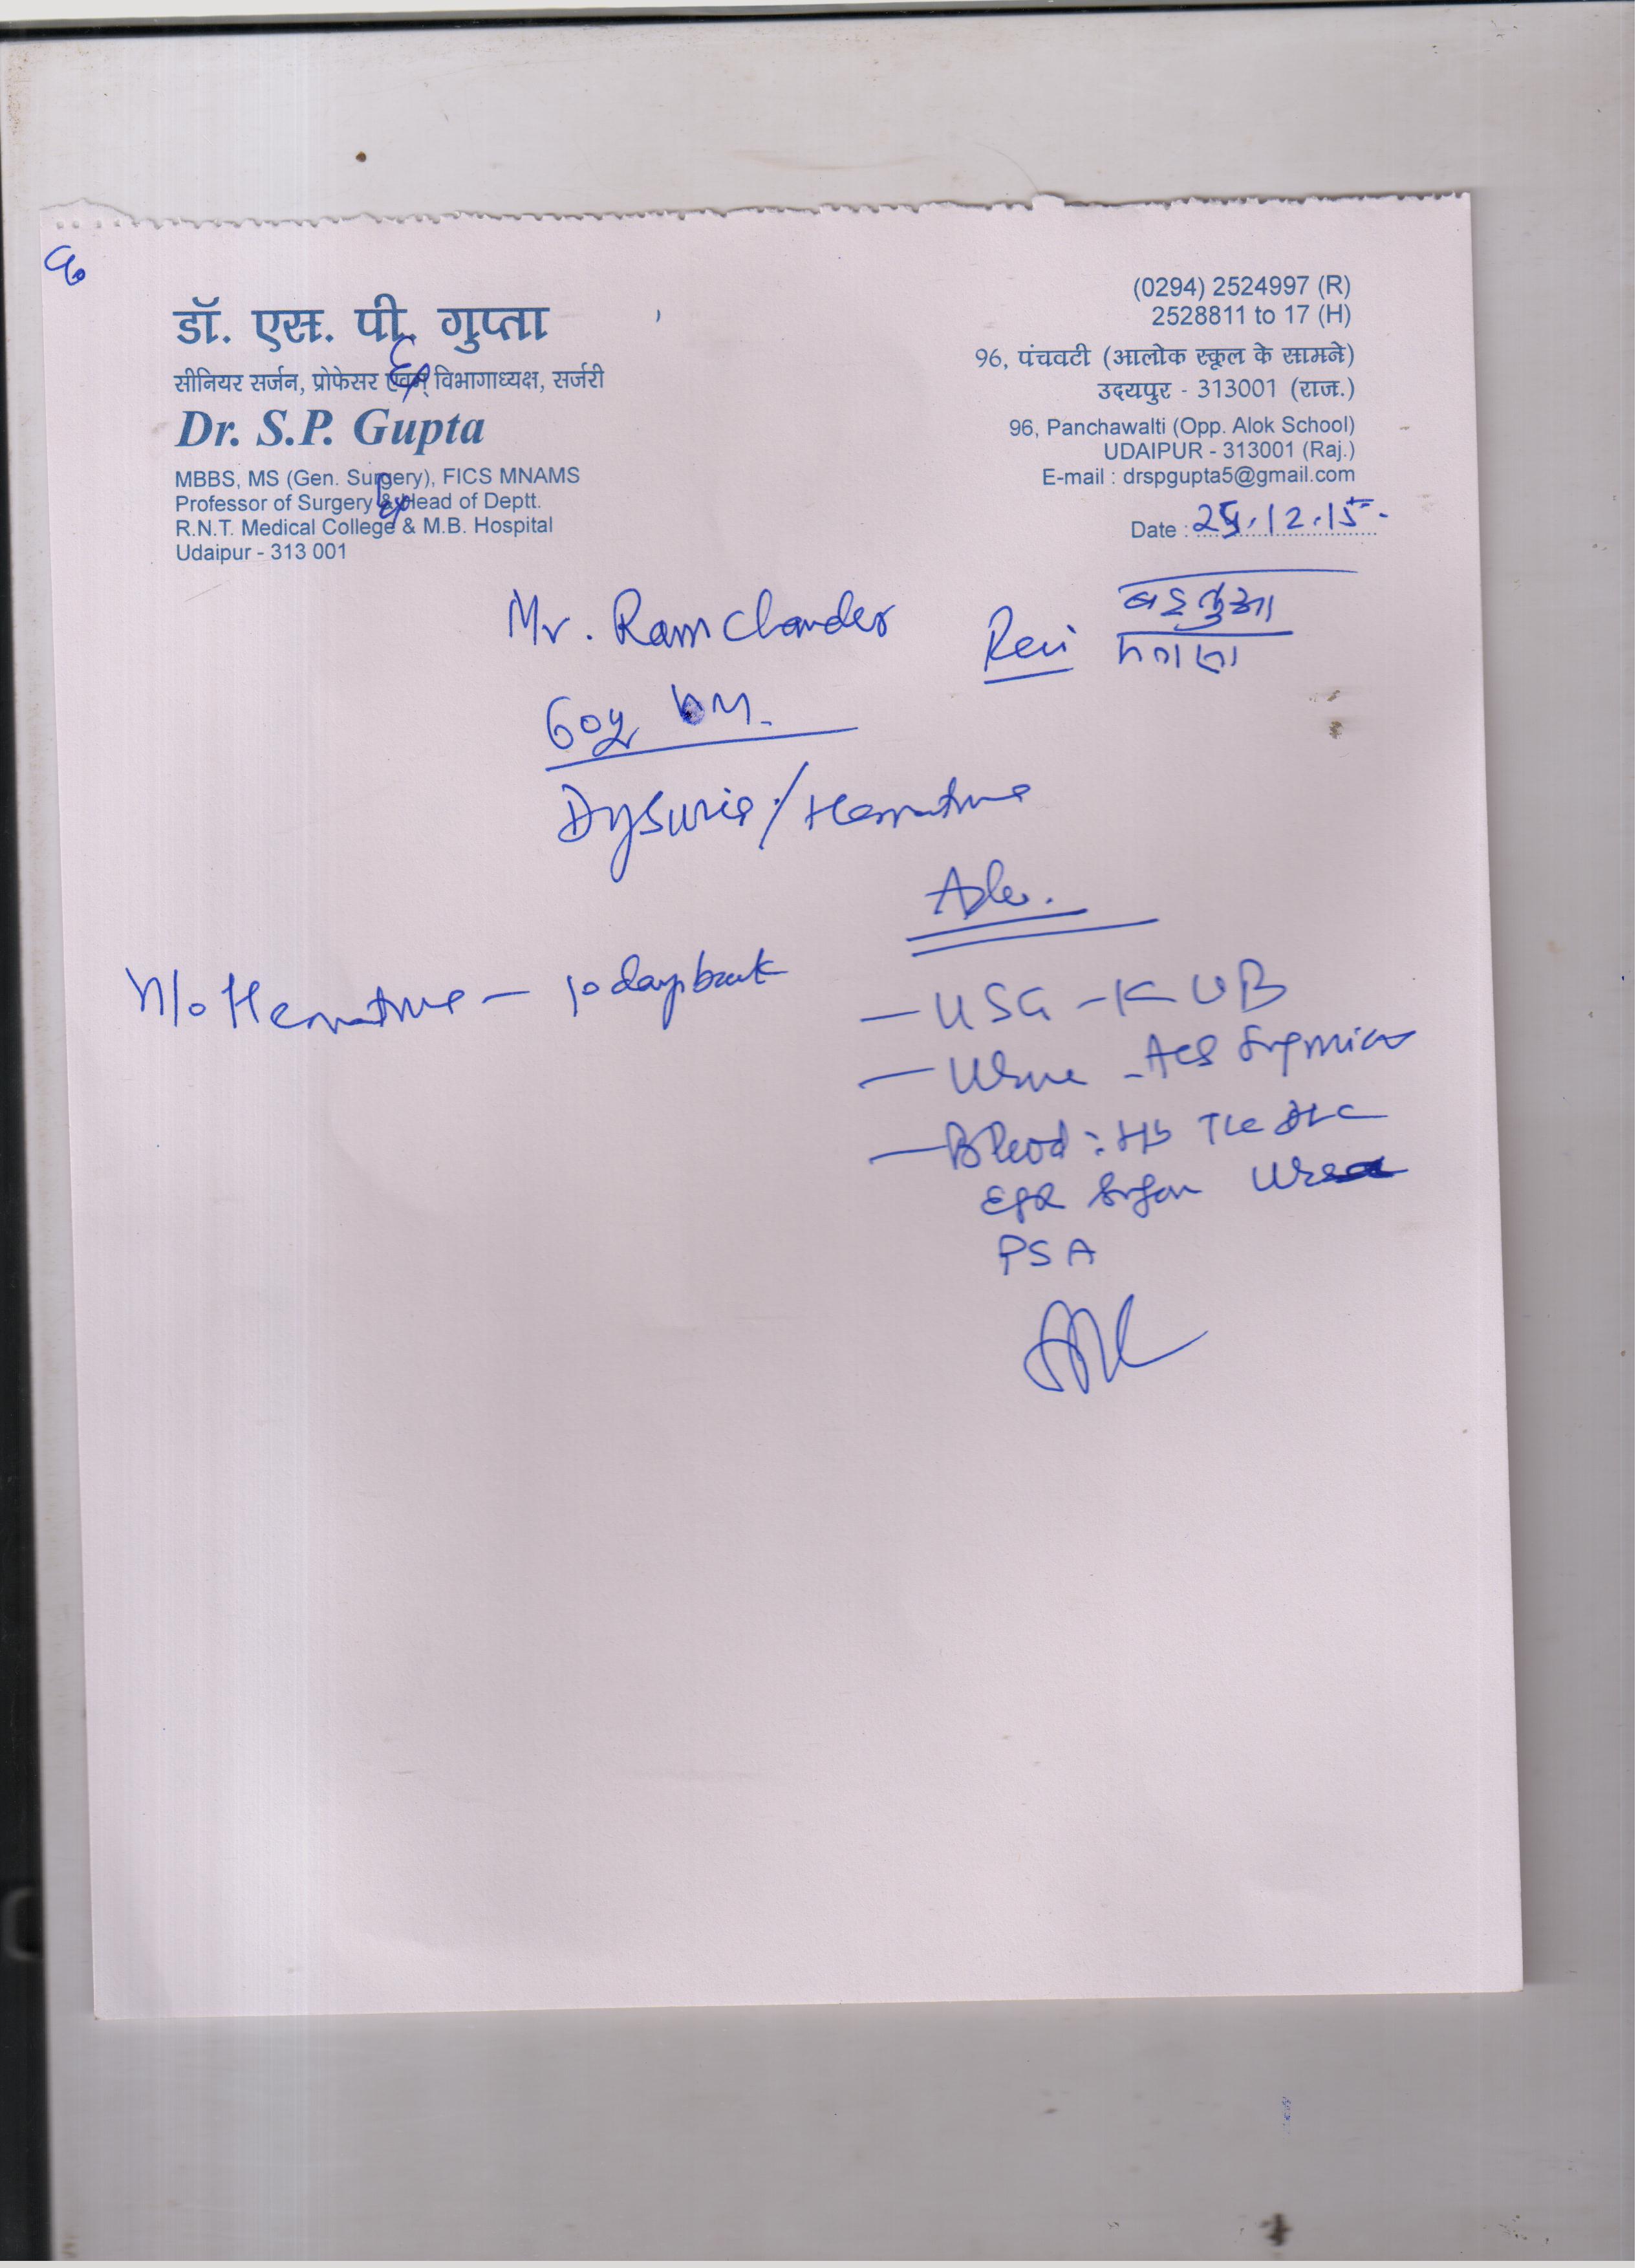 डॉ. एस. पी. गुप्ता
सीनियर सर्जन, प्रोफेसर एवम् विभागाध्यक्ष, सर्जरी
Dr. S.P. Gupta
MBBS, MS (Gen. Surgery), FICS MNAMS
Professor of Surgery & Head of Deptt.
R.N.T. Medical College & M.B. Hospital
Udaipur - 313 001
(0294) 2524997 (R)
2528811 to 17 (H)
96, पंचवटी (आलोक स्कूल के सामने)
उदयपुर - 313001 (राज.)
96, Panchawalti (Opp. Alok School)
UDAIPUR - 313001 (Raj.)
E-mail : drspgupta5@gmail.com
Date : .12.15
Mr. Ram Chander
60y M.
Dysuria / Hematuria
Adv.
H/o Hematuria - 10 days back
- USG - KUB
- Urine - Alb Sug micro
- Blood : Hb TLC DLC
ESR Sugar Urea
PSA